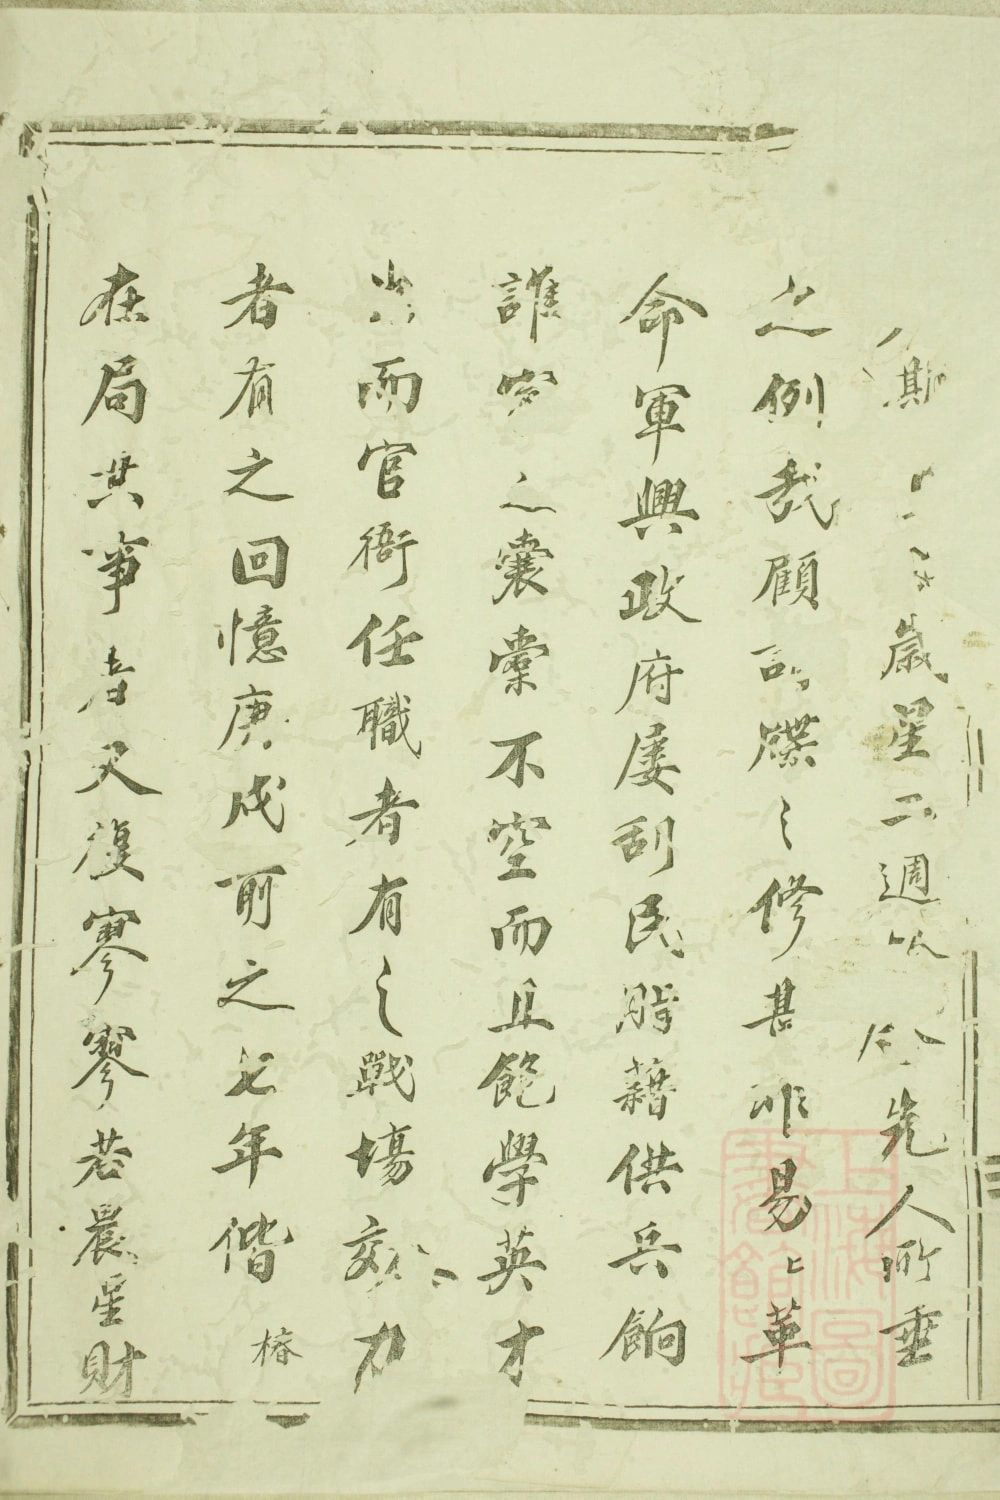 斯歲星二週先人所垂
之例我顧譜牒之修甚非易易革
命軍興政府屢刮民脂藉供兵餉
誰家之囊橐不空而且飽學英才
出而官衙任職者有之戰場効力
者有之回憶庚戌前之七年偕椿
在局共事者又復寥寥若晨星財
上海圖書館藏